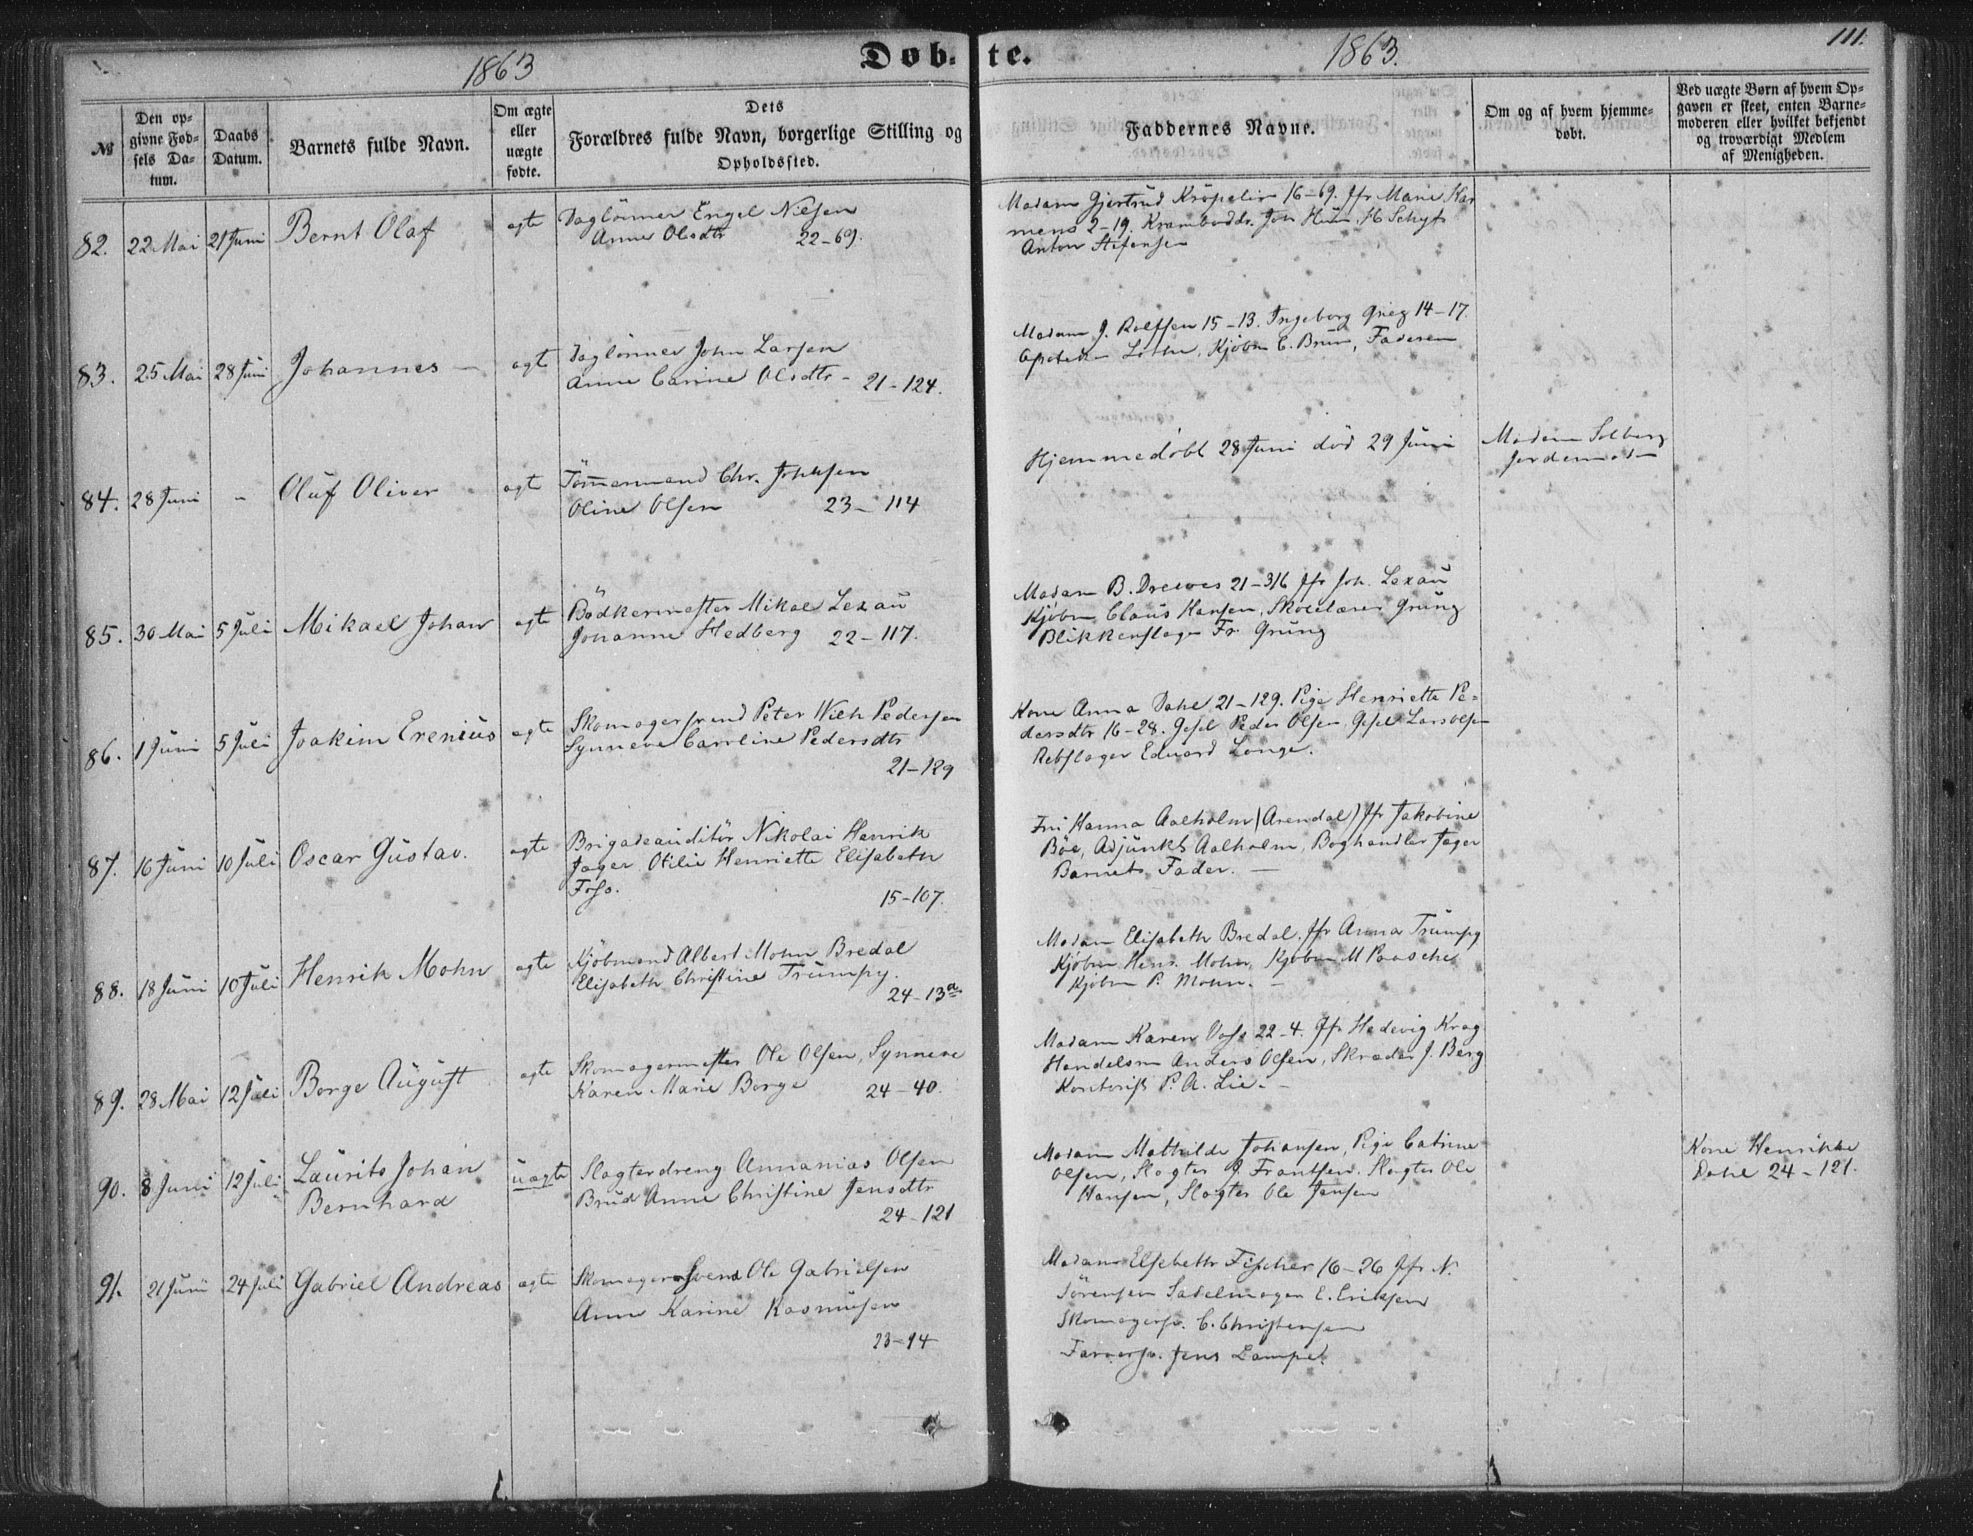 1863 Døbte. 1863. 111.
№
Den opgivne Fødsels Datum.
Daabs Datum.
Barnets fulde Navn.
Om ægte eller uægte fødte.
Dets Forældres fulde Navn, borgerlige Stilling og Opholdssted.
Faddernes Navne.
Om og af hvem hjemmedøbt.
Ved uægte Børn af hvem Opgaven er skeet, enten Barnemoderen eller hvilket bekjendt og troværdigt Medlem af Menigheden.
82. 22 Mai 21 Juni Bernt Olaf ægte Daglönner Engel Nilsen
Anne Olsdtr 22-69.
Madam Gjertrud Kröpelin 16-69. Jfr Marie Kar
mens 2-19. Joh
Anton
83. 25 Mai 28 Juni Johannes — ægt Daglönner John Larsen
Anne Carine Olsdtr - 21-124.
Madam J. Rolfsen 15-13. Ingeborg Grieg 14-17.
Kjøbm C. Brun, Faderen
84. 28 Juni - Oluf Oliver ægt Tömmermand Chr. Johnsen
Oline Olsen 23-114
Hjemmedøbt 28 Juni död 29 Juni
Madam Solberg
85. 30 Mai 5 Juli Mikael Johan ægt Bödkermester Mikael Lexau
Johanne Hedberg 22-117.
Madam B. Drewes 21-316 Jfr Joh. Lexau
Kjøbm Claus Hansen, Skolelærer Grung
Blikkenslager Fr. Grung
86. 1 Juni 5 Juli Joakim Erenius ægte Skomagersvend Peter Wilh Pedersen
Synneve Caroline Pedersdtr
21-129
Kone Anna Dahl 21-129. Pige Henriette Pe-
dersdtr 16-28. Peder Olsen, Lars Olsen
Rebslager Edvard Lange.
87. 16 Juni 10 Juli Oscar Gustav. ægte Brigadeauditör Nikolai Henrik
Jæger Otilie Henriette Elisabeth
Foss.
15-107.
Hanna Aalholm (Arendal) Jfr Jakobine
Böe, Adjunkt Aalholm, Boghandler Jæger
Barnets Fader. —
88. 18 Juni 10 Juli Henrik Mohn ægte Kjöbmand Albert Mohn Bredal
Elisabeth Christine Trümpy.
24-13a
Madam Elisabeth Bredal. Jfr Anna Trümpy
Kjøbm Hens. Mohn, Kjøbm M Paasche
Kjøbm P. Mohn. -
89. 28 Mai 12 Juli Borge August ægte Skomagermester Ole Olsen, Synneve
Karen Marie Borge 24-40.
Madam Karen Voss 22-4. Jfr Hedevig Krag
Handelsm Anders Olsen, Skræder J. Berg
Kontorist P. A. Lie. -
90. 8 Juni 12 Juli Laurits Johan
Bernhard
uægte Slagterdreng Annanias Olsen
Brud Anne Christine Jensdtr
24-121
Madam Mathilde Johansen, Pige Catrine
Olsen, Slagter J. Frantsen. Slagter Ole
Hansen, Slagter Ole Jensen
Kone Henrikke
Dahl 24-121.
91. 21 Juni 24 Juli Gabriel Andreas ægte Skomagersvend Ole Gabrielsen
Anne Karine Rasmusen
23-94
Madam Elsebeth Fischer 16-26 Jfr N.
Sörensen Sadelmager E. Eriksen
Skomagersv. C. Christensen
Farversv. Jens Lampe.